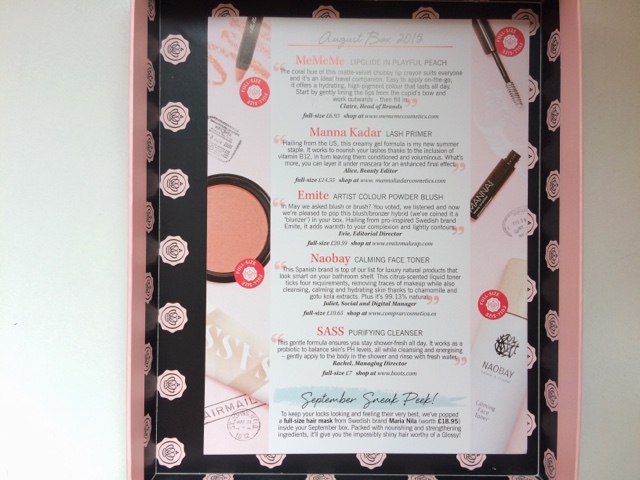 August Box 2015
MeMeMe LIPGLIDE IN PLAYFUL PEACH
The coral hue of this matte-velvet chubby lip crayon suits everyone
and it's an ideal travel companion. Easy to apply on-the-go,
it offers a hydrating, high-pigment colour that lasts all day.
Start by gently lining the lips from the cupid's bow and
work outwards – then fill in.
Claire, Head of Brands
full-size £6.95 shop at www.mememecosmetics.com
Manna Kadar LASH PRIMER
Hailing from the US, this creamy gel formula is my new summer
staple. It works to nourish your lashes thanks to the inclusion of
vitamin B12, in turn leaving them conditioned and voluminous. What's
more, you can layer it under mascara for an enhanced final effect.
Alice, Beauty Editor
full-size £14.55 shop at www.mannakadarcosmetics.com
Emite ARTIST COLOUR POWDER BLUSH
In May we asked blush or bronze? You voted, we listened and now
we're pleased to pop this blush/bronzer hybrid (we've coined it a
'blunzer') in your box. Hailing from pro-inspired Swedish brand
Emite, it adds warmth to your complexion and lightly contours.
Evie, Editorial Director
full-size shop at www.emitemakeup.com
Naobay CALMING FACE TONER
This Spanish brand is top of our list for luxury natural products that
look smart on your bathroom shelf. This citrus-scented liquid toner
ticks four categories, removing traces of makeup while also
cleansing, calming and hydrating skin thanks to chamomile and
gotu kola extracts. Plus it's 99.13% natural.
Juliet, Social and Digital Manager
full-size £10.65 shop at www.comprarcosmetica.es
SASS PURIFYING CLEANSER
This gentle formula ensures you stay shower-fresh all day. It works as a
probiotic to balance skin's PH levels, all while cleansing and energising
– gently apply to the body in the shower and rinse with fresh water.
Rachel, Managing Director
full-size £7 shop at www.boots.com
September Sneak Peek!
To keep your locks looking and feeling their very best, we've popped
a full-size hair mask from Swedish brand Maria Nila (worth £18.95)
inside your September box. Packed with nourishing and strengthening
ingredients, it'll give you the impossibly shiny hair worthy of a Glossy!
FULL-SIZE
FULL-SIZE
FULL-SIZE
FULL-SIZE
MANNA
SASS
AIRMAIL
NAOBAY
Calming
Face
Toner